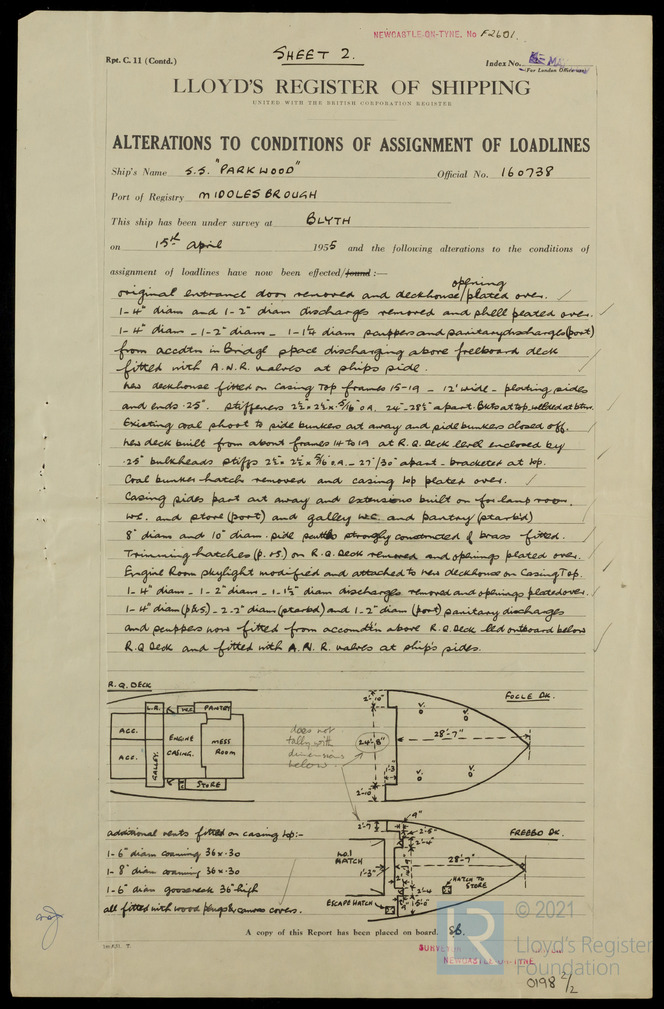 NEWCASTLE-ON-TYNE. No F2601.
SHEET 2.
Rpt. C. 11 (Contd.)
Index No.
(For London Office use)
LLOYD'S REGISTER OF SHIPPING
UNITED WITH THE BRITISH CORPORATION REGISTER
ALTERATIONS TO CONDITIONS OF ASSIGNMENT OF LOADLINES
Ship's Name S.S. "PARKWOOD" Official No. 160738
Port of Registry MIDDLESBROUGH
This ship has been under survey at BLYTH
on 15th April 1955 and the following alterations to the conditions of
assignment of loadlines have now been effected/found :—
opening
original entrance door removed and deckhouse/plated over.
1-4" diam and 1-2" diam discharges removed and shell plated over.
1-4" diam - 1-2" diam - 1-1¼ diam scuppers and sanitary discharges (port)
from accdtn in Bridge space discharging above freeboard deck
fitted with A.N.R. valves at ships side.
New deckhouse fitted on Casing Top frames 15-19 - 12' wide - plating sides
and ends .25". Stiffeners 2½ x 2½ x 5/16 O.A. 24"-28½" apart. Bkts at top, welded at btm.
Existing coal shoot to side bunkers cut away and side bunkers closed off.
New deck built from about frames 14 to 19 at R.Q. Deck level enclosed by
.25" bulkheads stiffs 2½" x 2½ x 5/16 O.A. - 27"/30" apart - bracketed at top.
Coal bunker hatch removed and casing top plated over.
Casing sides part cut away and extensions built on for lamp room,
W.C. and store (port) and galley W.C. and pantry (starbd)
8" diam and 10" diam. side scuttles strongly constructed of brass fitted.
Trimming hatches (P.&S.) on R.Q. Deck removed and openings plated over.
Engine Room skylight modified and attached to new deckhouse on Casing Top.
1-4" diam - 1-2" diam - 1-1½" diam discharges removed and openings plated over.
1-4" diam (P&S) - 2-2" diam (starbd) and 1-2" diam (port) sanitary discharges
and scuppers now fitted from accomdtn above R.Q. Deck led outboard below
R.Q Deck and fitted with A.N.R. valves at ship's sides.
R.Q. DECK
L.R.
W.C.
PANTRY
ACC.
ACC.
GALLEY.
ENGINE
CASING.
MESS
ROOM
STORE
does not
tally with
dimensions
below.
2'-10"
24'-8"
1'-3"
2'-10"
28'-7"
V.
V.
V.
V.
FOCLE DK.
additional vents fitted on casing top:-
1-6" diam coaming 36 x .30
1-8" diam coaming 36 x .30
1-6" diam gooseneck 36" high
all fitted with wood plugs & canvas covers.
2'-7"
9"
2'-4"
FREEBD DK.
No.1
HATCH
1'-3"
28'-7"
2'-4
HATCH TO
STORE
ESCAPE HATCH
A copy of this Report has been placed on board.
NEWCASTLE-ON-TYNE
© 2021
LR
Lloyd's Register
Foundation
0198 2/2